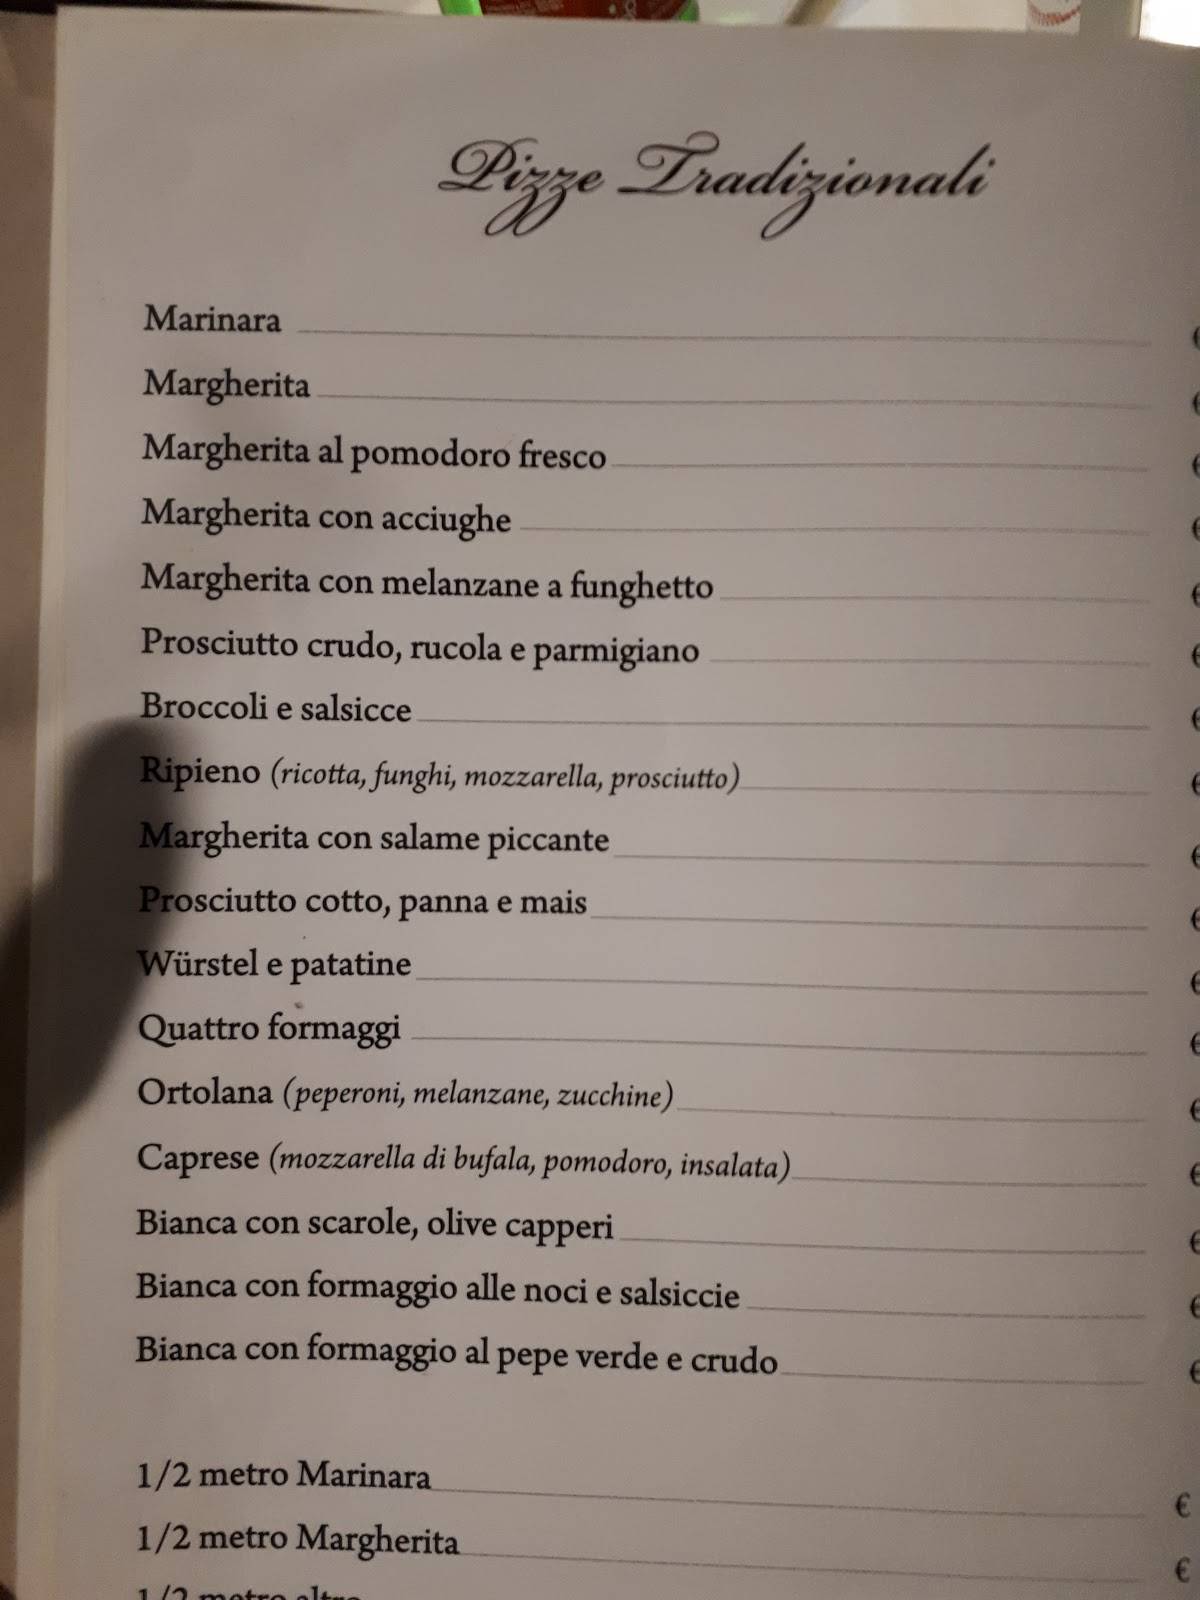 Pizze Tradizionali
Marinara €
Margherita €
Margherita al pomodoro fresco €
Margherita con acciughe €
Margherita con melanzane a funghetto €
Prosciutto crudo, rucola e parmigiano €
Broccoli e salsicce €
Ripieno (ricotta, funghi, mozzarella, prosciutto) €
Margherita con salame piccante €
Prosciutto cotto, panna e mais €
Würstel e patatine €
Quattro formaggi €
Ortolana (peperoni, melanzane, zucchine) €
Caprese (mozzarella di bufala, pomodoro, insalata) €
Bianca con scarole, olive capperi €
Bianca con formaggio alle noci e salsiccie €
Bianca con formaggio al pepe verde e crudo €
1/2 metro Marinara €
1/2 metro Margherita €
1/2 metro altre